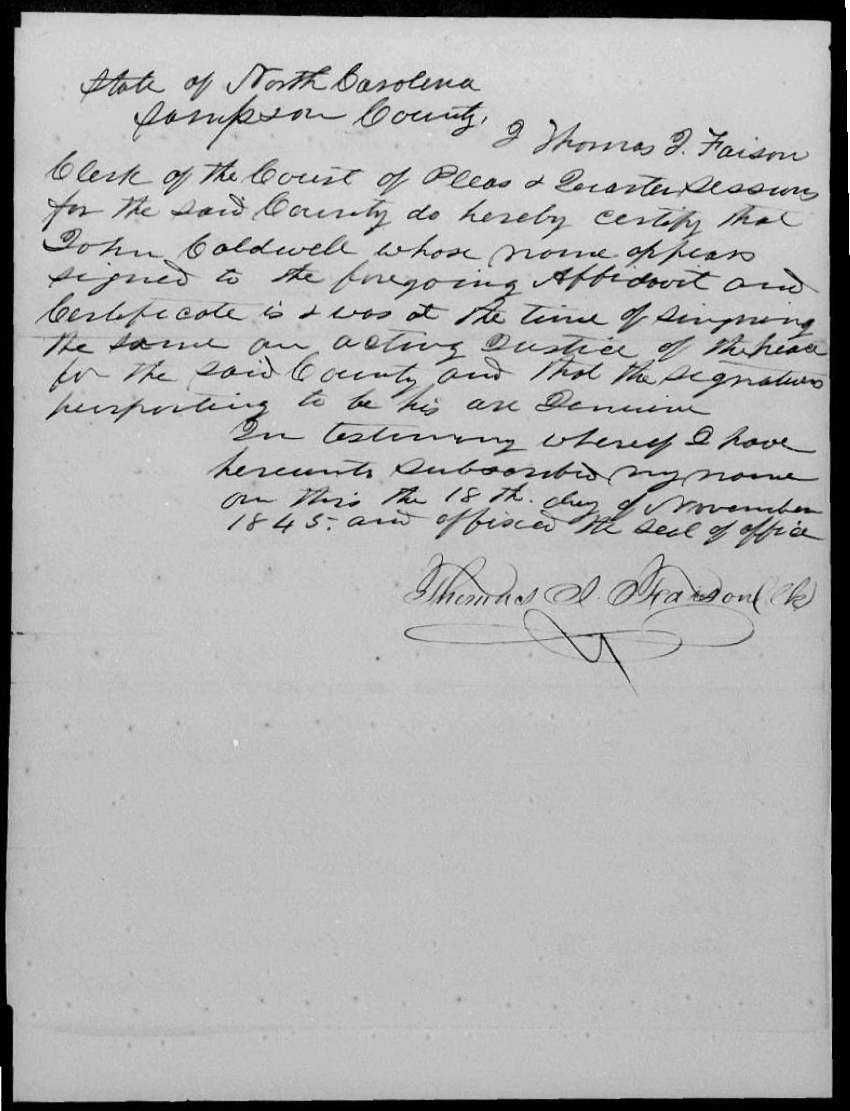 State of North Carolina
Sampson County,
I Thomas I. Faison
Clerk of the Court of Pleas & Quarter Sessions
for the said County do hereby certify that
John Coldwell whose name appears
signed to the foregoing Affidavit and
Certificate is & was at the time of singning
the same an acting Justice of the peace
for the said County and that the signatures
purporting to be his are Genuine
In testimony whereof I have
hereunto subscribed my name
on this the 18th. day of November
1845. and affixed the seal of office
Thomas I. Faison Clk